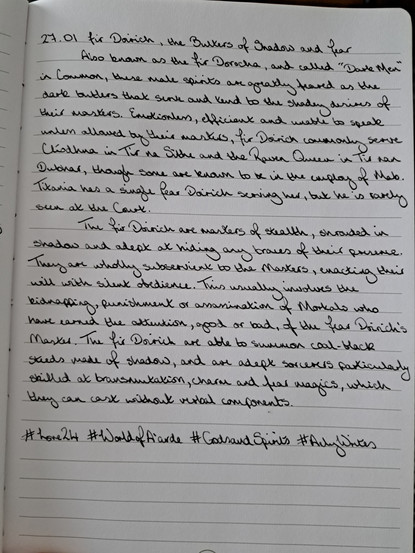 27.01 Fir Doirich, the Butlers of Shadow and Fear
Also known as the Fir Dorocha, and called "Dark Men"
in Common, these male spirits are greatly feared as the
dark butlers that serve and tend to the shady desires of
their masters. Emotionless, efficient and unable to speak
unless allowed by their masters, Fir Doirich commonly serve
Clíodhna in Tír na Sithe and the Raven Queen in Tír nan
Dubhar, though some are known to be in the employ of Mab.
Titania has a single Fear Doirich serving her, but he is rarely
seen at the Court.
The Fir Doirich are masters of stealth, shrouded in
shadow and adept at hiding any traces of their presence.
They are wholly subservient to the Masters, enacting their
will with silent obedience. This usually involves the
kidnapping, punishment or assassination of Mortals who
have earned the attention, good or bad, of the Fear Doirich's
Master. The Fir Doirich are able to summon coal-black
steeds made of shadow, and are adept sorcerers particularly
skilled at transmutation, charm and fear magics, which
they can cast without verbal components.
#Lore24 #WorldofAiarde #GodsandSpirits #ArlyWrites